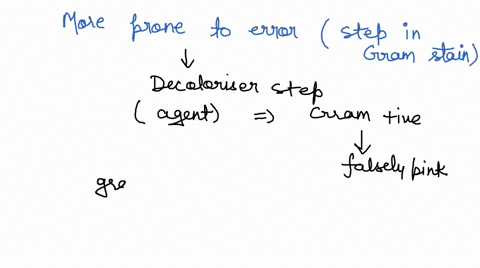 More prone to error ( step in
Gram stain)
↓
Decoloriser step
( agent) => Gram +ive
↓
falsely pink
gre